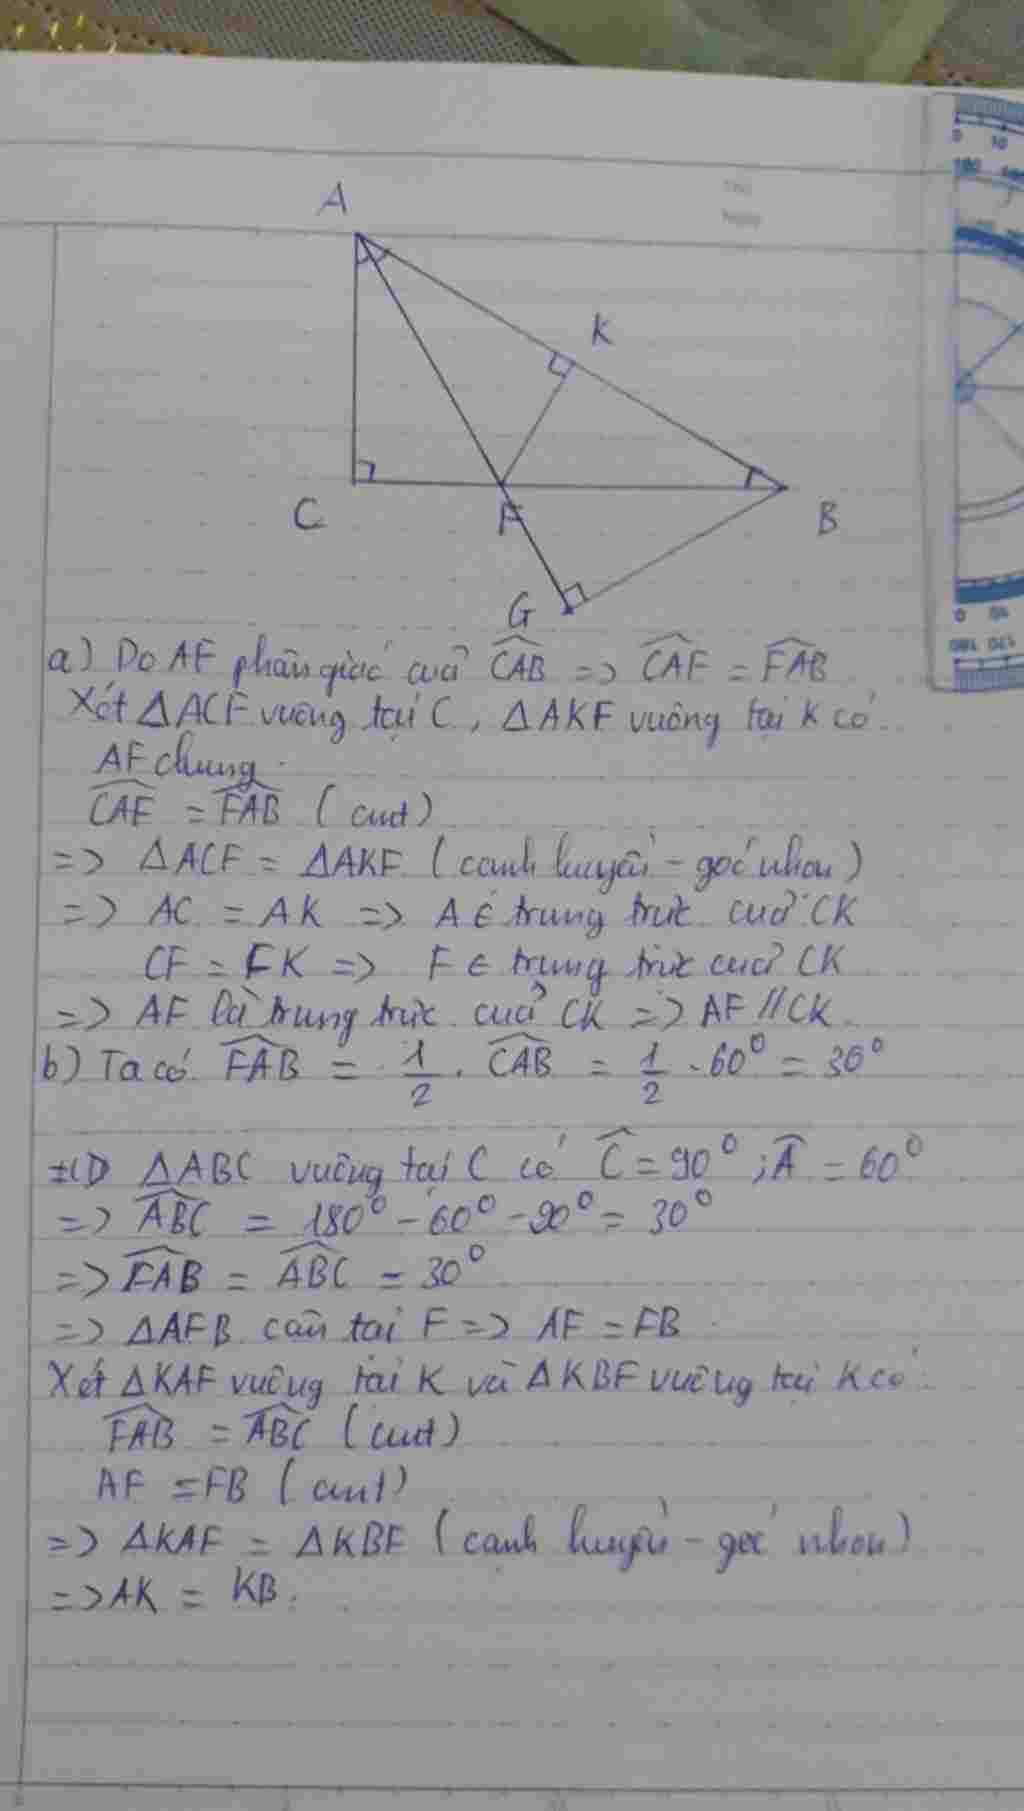 A
K
C
F
B
G
a) Do AF phân giác của CAB => CAF = FAB
Xét ΔACF vuông tại C, ΔAKF vuông tại K có
AF chung
CAF = FAB (cmt)
=> ΔACF = ΔAKF (cạnh huyền - góc nhọn)
=> AC = AK => A ∈ trung trực của CK
CF = FK => F ∈ trung trực của CK
=> AF là trung trực của CK => AF // CK
b) Ta có FAB = 1/2 . CAB = 1/2 . 60° = 30°
ΔABC vuông tại C có C = 90° ; A = 60°
=> ABC = 180° - 60° - 90° = 30°
=> FAB = ABC = 30°
=> ΔAFB cân tại F => AF = FB
Xét ΔKAF vuông tại K và ΔKBF vuông tại K có
FAB = ABC (cmt)
AF = FB (cmt)
=> ΔKAF = ΔKBF (cạnh huyền - góc nhọn)
=> AK = KB.